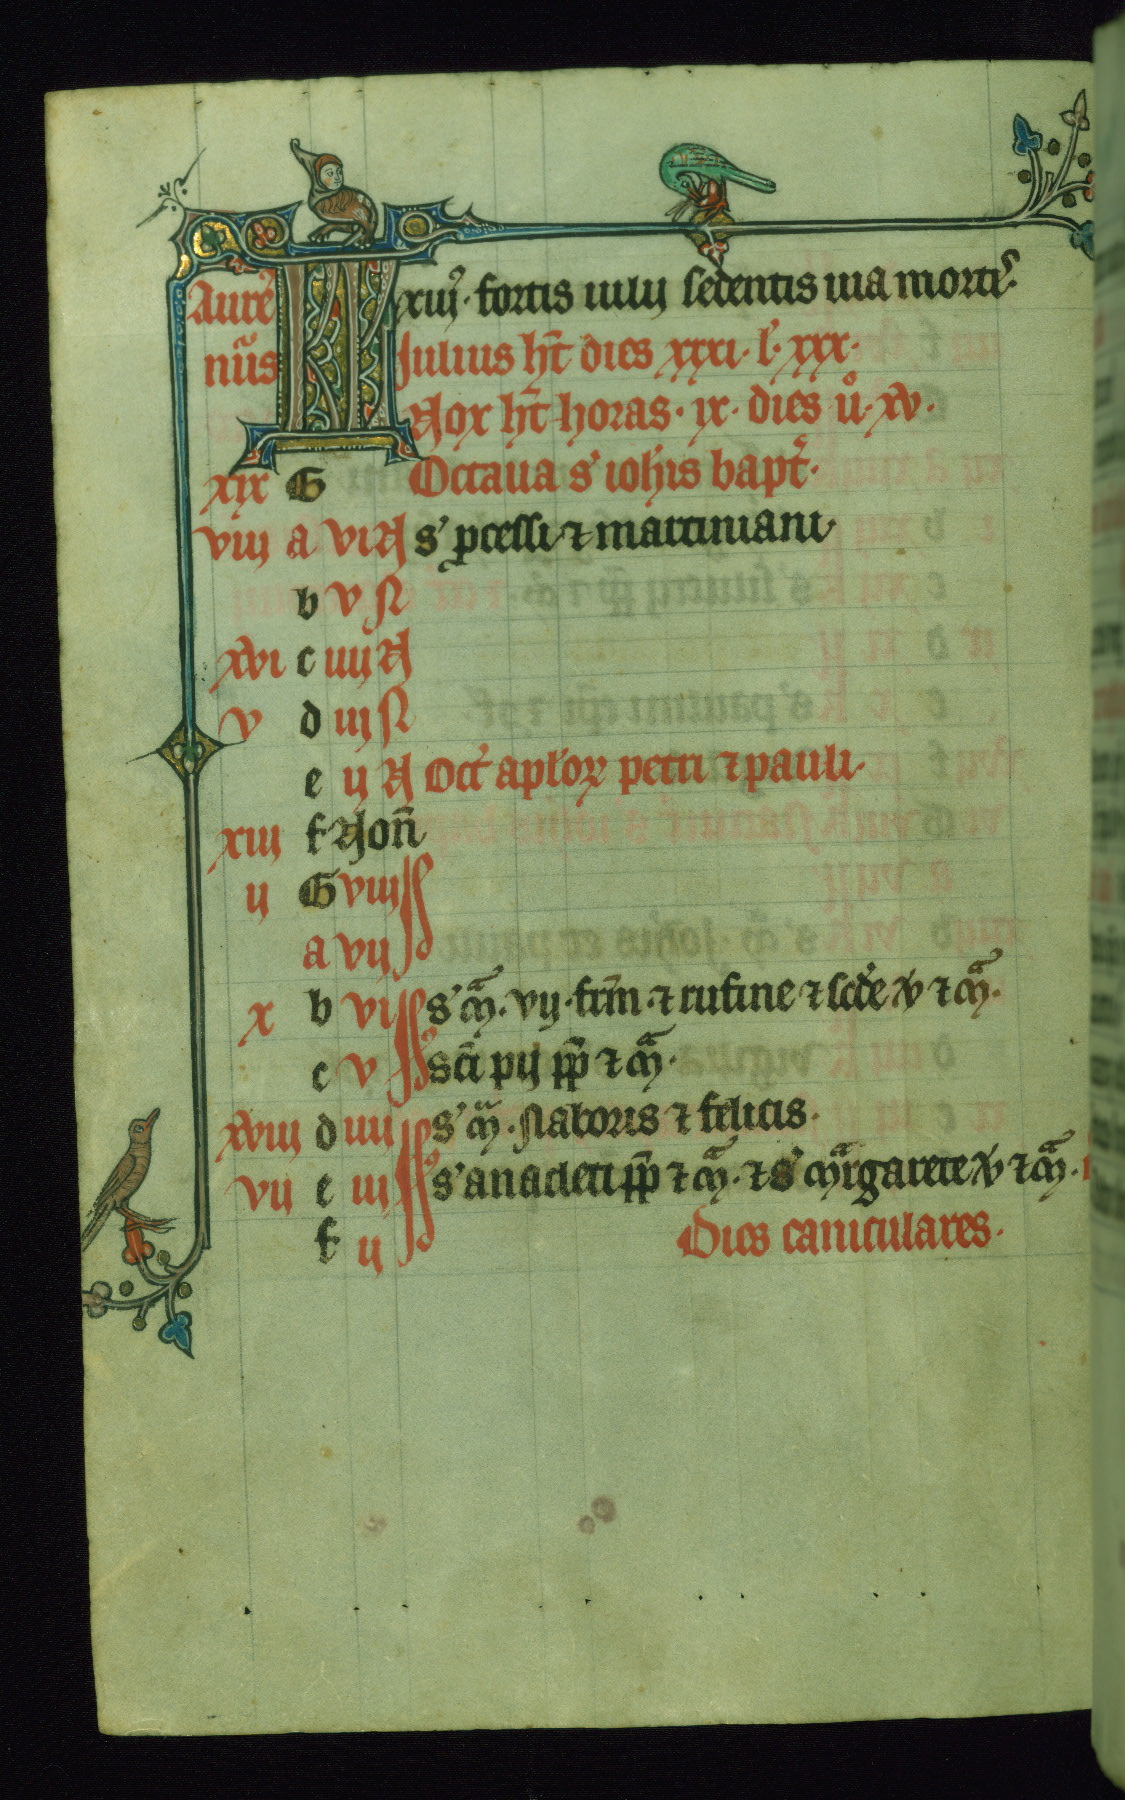 Aure KL xiij· fortis iulij sedentis uia mortis·
nũs Julius hт̃ dies xxxi· l̓· xxx·
Nox hт̃ horas· ix· dies ů· xv·
xix G Octaua s' ioh̃is bapt̓·
viij a vi N s' ꝓcessi ⁊ martiniani·
b v N
xvi c iiij N
v d iij N
e ij N Oct̓ aplõꝝ petri ⁊ pauli·
xiii f Noñ
ij G viij
a vij
x b vi s' m̃· vij· frm̃· ⁊ rufine ⁊ scd̓e v ⁊ m̃·
c v sc̃i pij pp̃ ⁊ m̃·
xviij d iiij s' m̃· Naboris ⁊ felicis·
vij e iij s' anacleti pp̃ ⁊ m̃· ⁊ s' m̃rgarete v ⁊ m̃·
f ij Dies caniculares·